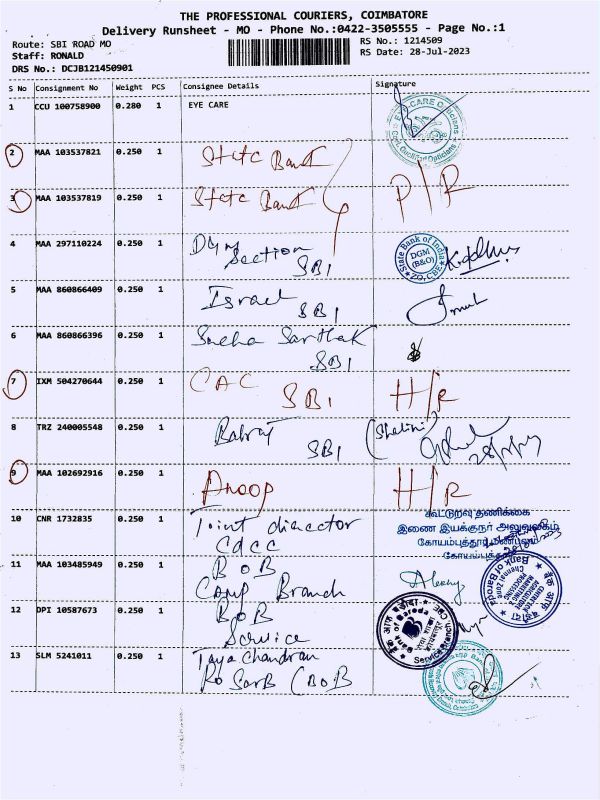 THE PROFESSIONAL COURIERS, COIMBATORE
Delivery Runsheet - MO - Phone No.:0422-3505555 - Page No.:1
Route: SBI ROAD MO
RS No.: 1214509
Staff: RONALD
RS Date: 28-Jul-2023
DRS No.: DCJB121450901
S No Consignment No Weight PCS Consignee Details Signature
1 CCU 100758900 0.280 1 EYE CARE
EYE-CARE Opticians
2 MAA 103537821 0.250 1 State Bank
3 MAA 103537819 0.250 1 State Bank P/R
4 MAA 297110224 0.250 1 DGM
Section
SBI
State Bank of India
DGM
(B&O)
ZO, CBE
5 MAA 860866409 0.250 1 Israel SBI
6 MAA 860866396 0.250 1 Sneha Sarthak
SBI
7 IXM 504270644 0.250 1 CAC
SBI H/R
8 TRZ 240005548 0.250 1 Balraj (Shalini)
SBI
9 MAA 102692916 0.250 1 Anoop H/R
10 CNR 1732835 0.250 1 Joint director
கூட்டுறவு தணிக்கை
இணை இயக்குநர் அலுவலகம்
கோயம்புத்தூர் மண்டலம்
கோயம்புத்தூர்
11 MAA 103485949 0.250 1 BOB
Camp Branch
Bank of Baroda
12 DPI 10587673 0.250 1 BOB
Service
Bank of Baroda
Service Branch, CBE
13 SLM 5241011 0.250 1 Jayachandran
RO SarB (BOB